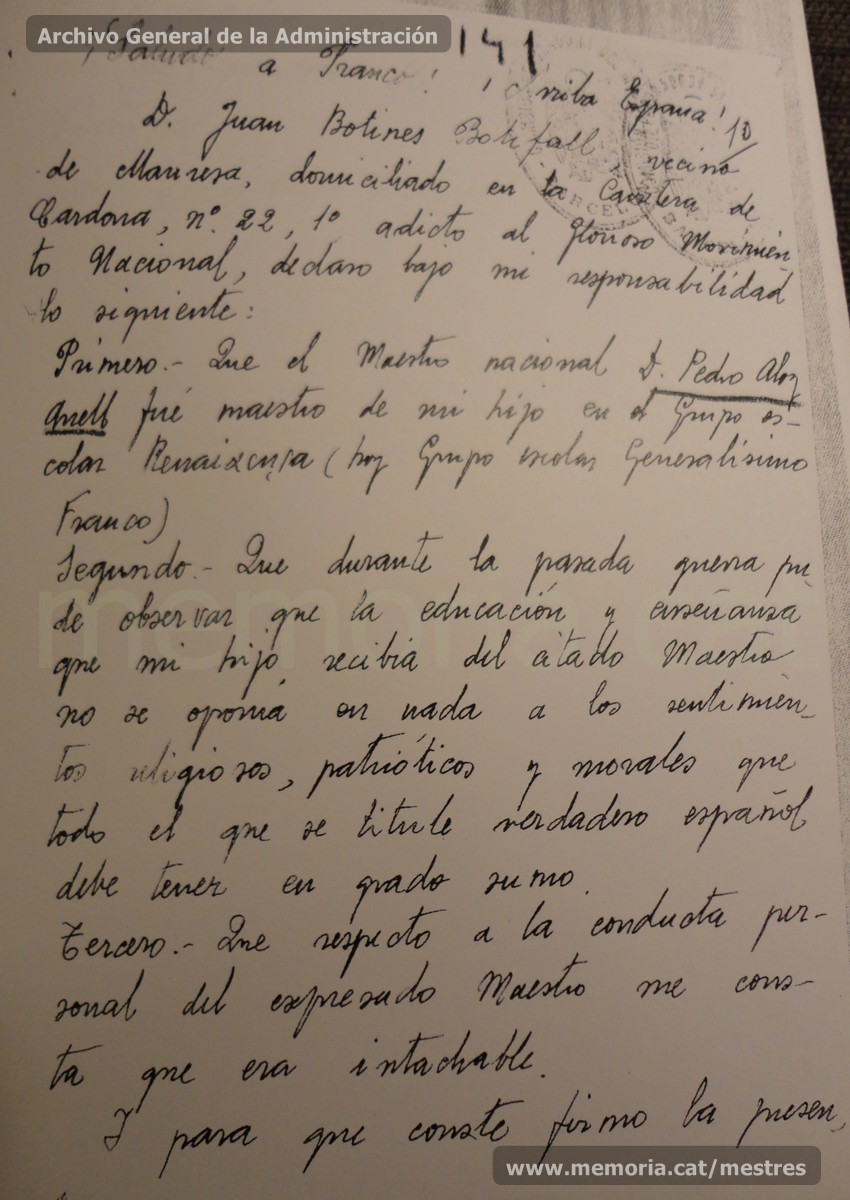 Archivo General de la Administración
141
¡Saludo a Franco! ¡Arriba España!
10
D. Juan Botines Botifall, vecino
de Manresa, domiciliado en la Carretera de
Cardona, nº. 22, 1º adicto al Glorioso Movimien
to Nacional, declaro bajo mi responsabilidad
lo siguiente:
Primero.- Que el Maestro nacional D. Pedro Aloy
Anell fué maestro de mi hijo en el Grupo es-
colar Renaixença (hoy Grupo escolar Generalísimo
Franco)
Segundo.- Que durante la pasada guerra pu-
de observar que la educación y enseñanza
que mi hijo recibia del citado Maestro
no se oponia en nada a los sentimien-
tos religiosos, patrióticos y morales que
todo el que se titule verdadero español
debe tener en grado sumo.
Tercero.- Que respecto a la conducta per-
sonal del expresado Maestro me cons-
ta que era intachable.
Y para que conste firmo la presen-
www.memoria.cat/mestres